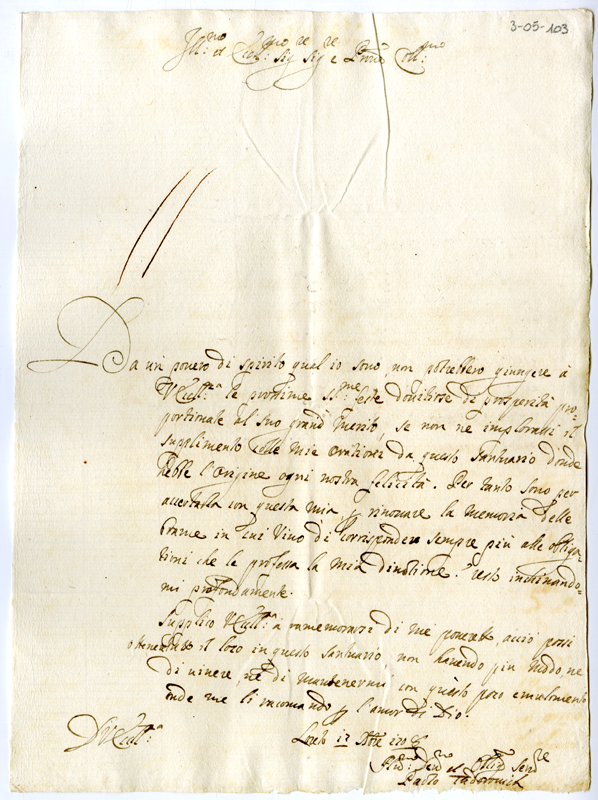 3-05-103
Ill:mo et Ecc:mo Sig.re Sig.re e Pron. Coll:mo
Da un povero di spirito qual io sono, non potrebbero giungere à
V Ecc:a le prossime S:me feste dovitiose di prosperità pro-
portionate al suo grand Merito, se non ne implorassi il
suplimento delle mie orationi da questo Santuario donde
hebbe l'origine ogni nostra felicità. Per tanto sono per
accertarla con questa mia p rinovare la memoria delle
brame in cui vivo di corrispondere sempre più alle obliga-
tioni che le professa la mia divotione. E resto inclinando-
mi profondamente.
Supplico V Ecc:a à ramemorarsi di me povereto, acciò possi
il loco in questo Santuario, non havendo più modo, ne
di vivere, ne di mantenermi con questo poco emolumento
onde me li racomando p l'amor di Dio.
D V Ecc:a
Loreto 12
Paolo